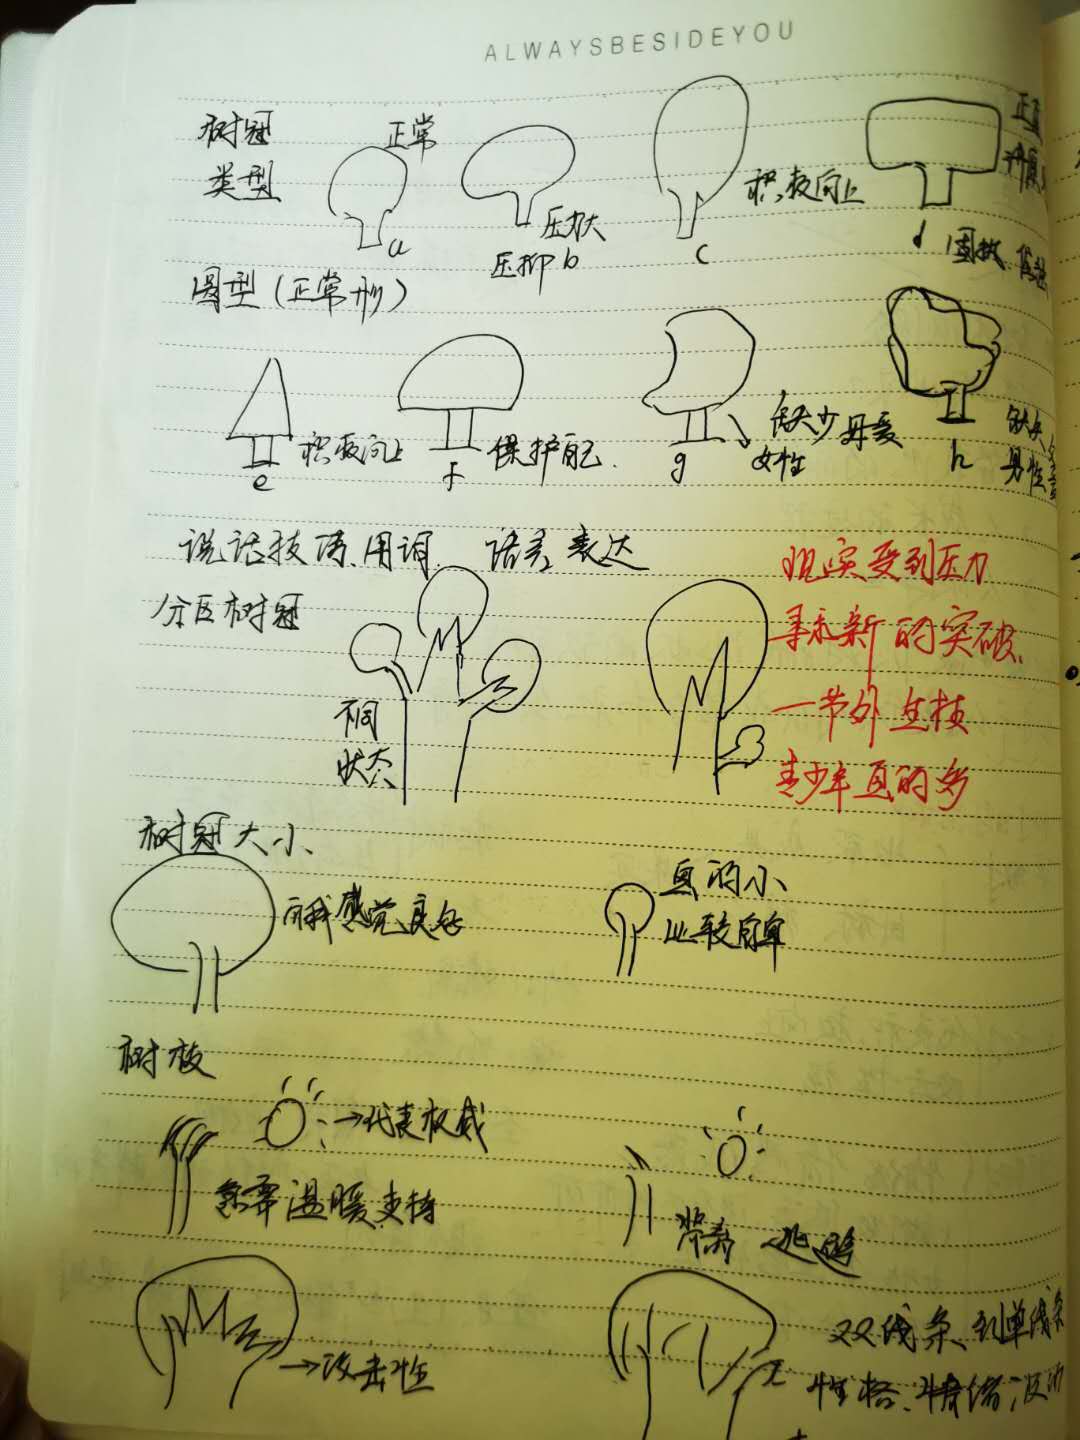 ALWAYSBESIDEYOU
树冠 正常
类型
压力大
压抑 b
a
积极向上
c
d 固执
圆型(正常形)
积极向上
e
保护自己.
f
缺少母爱
女性
g
h
男性
说话技巧、用词、 语言表达
分区树冠
不同
状态
现实受到压力
寻求新的突破、
一节外生枝
青少年画的多
树冠大小、
自我感觉良好
画的小
比较自卑
树枝
→代表权威
需要温暖、支持
逃避
→攻击性
双线条、到单线条
性格、情绪波动